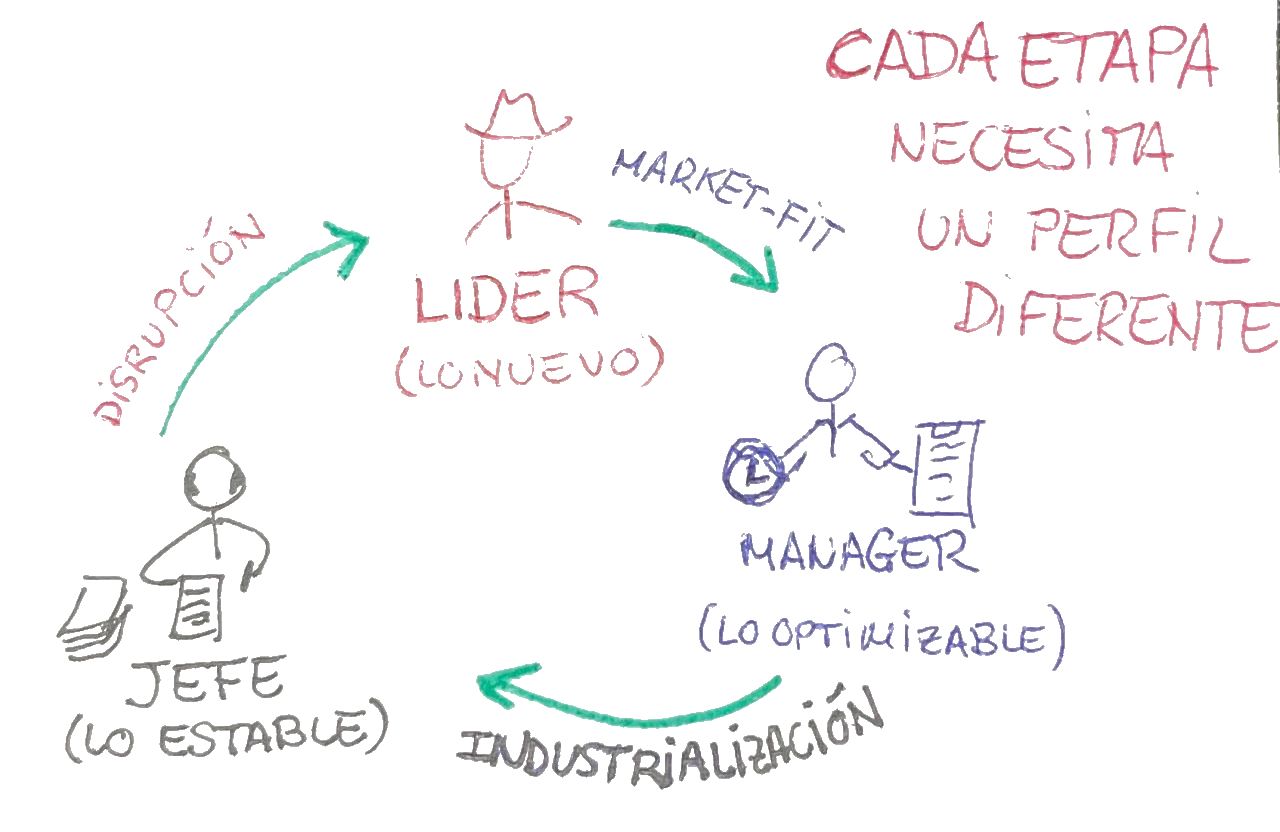 CADA ETAPA
NECESITA
UN PERFIL
DIFERENTE
DISRUPCIÓN
MARKET-FIT
LIDER
(LO NUEVO)
MANAGER
(LO OPTIMIZABLE)
JEFE
(LO ESTABLE)
INDUSTRIALIZACIÓN